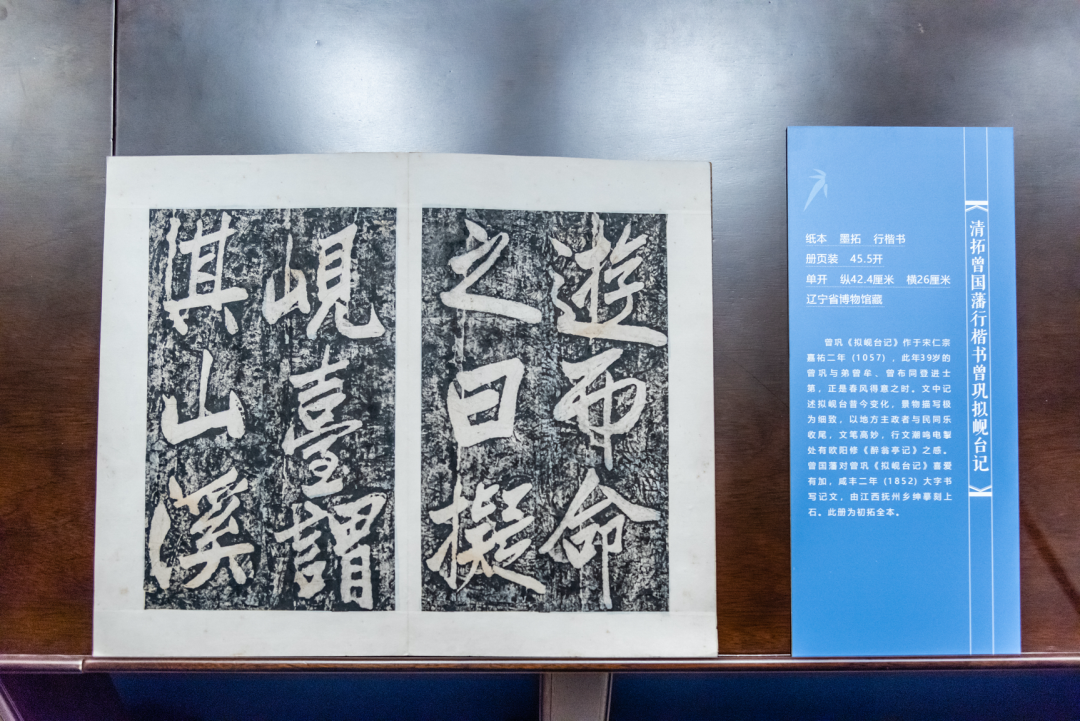 遊而命
之曰擬
峴臺謂
其山溪
【清拓曾国藩行楷书曾巩拟岘台记】
纸本 墨拓 行楷书
册页装 45.5开
单开 纵42.4厘米 横26厘米
辽宁省博物馆藏
曾巩《拟岘台记》作于宋仁宗
嘉祐二年（1057），此年39岁的
曾巩与弟曾牟、曾布同登进士
第，正是春风得意之时。文中记
述拟岘台昔今变化，景物描写极
为细致，以地方主政者与民同乐
收尾，文笔高妙，行文潮鸣电掣
处有欧阳修《醉翁亭记》之感。
曾国藩对曾巩《拟岘台记》喜爱
有加，咸丰二年（1852）大字书
写记文，由江西抚州乡绅摹刻上
石。此册为初拓全本。